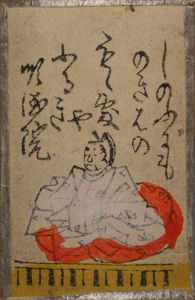 しのふにも
のきはの
もゝ敷や
ふるき
順徳院